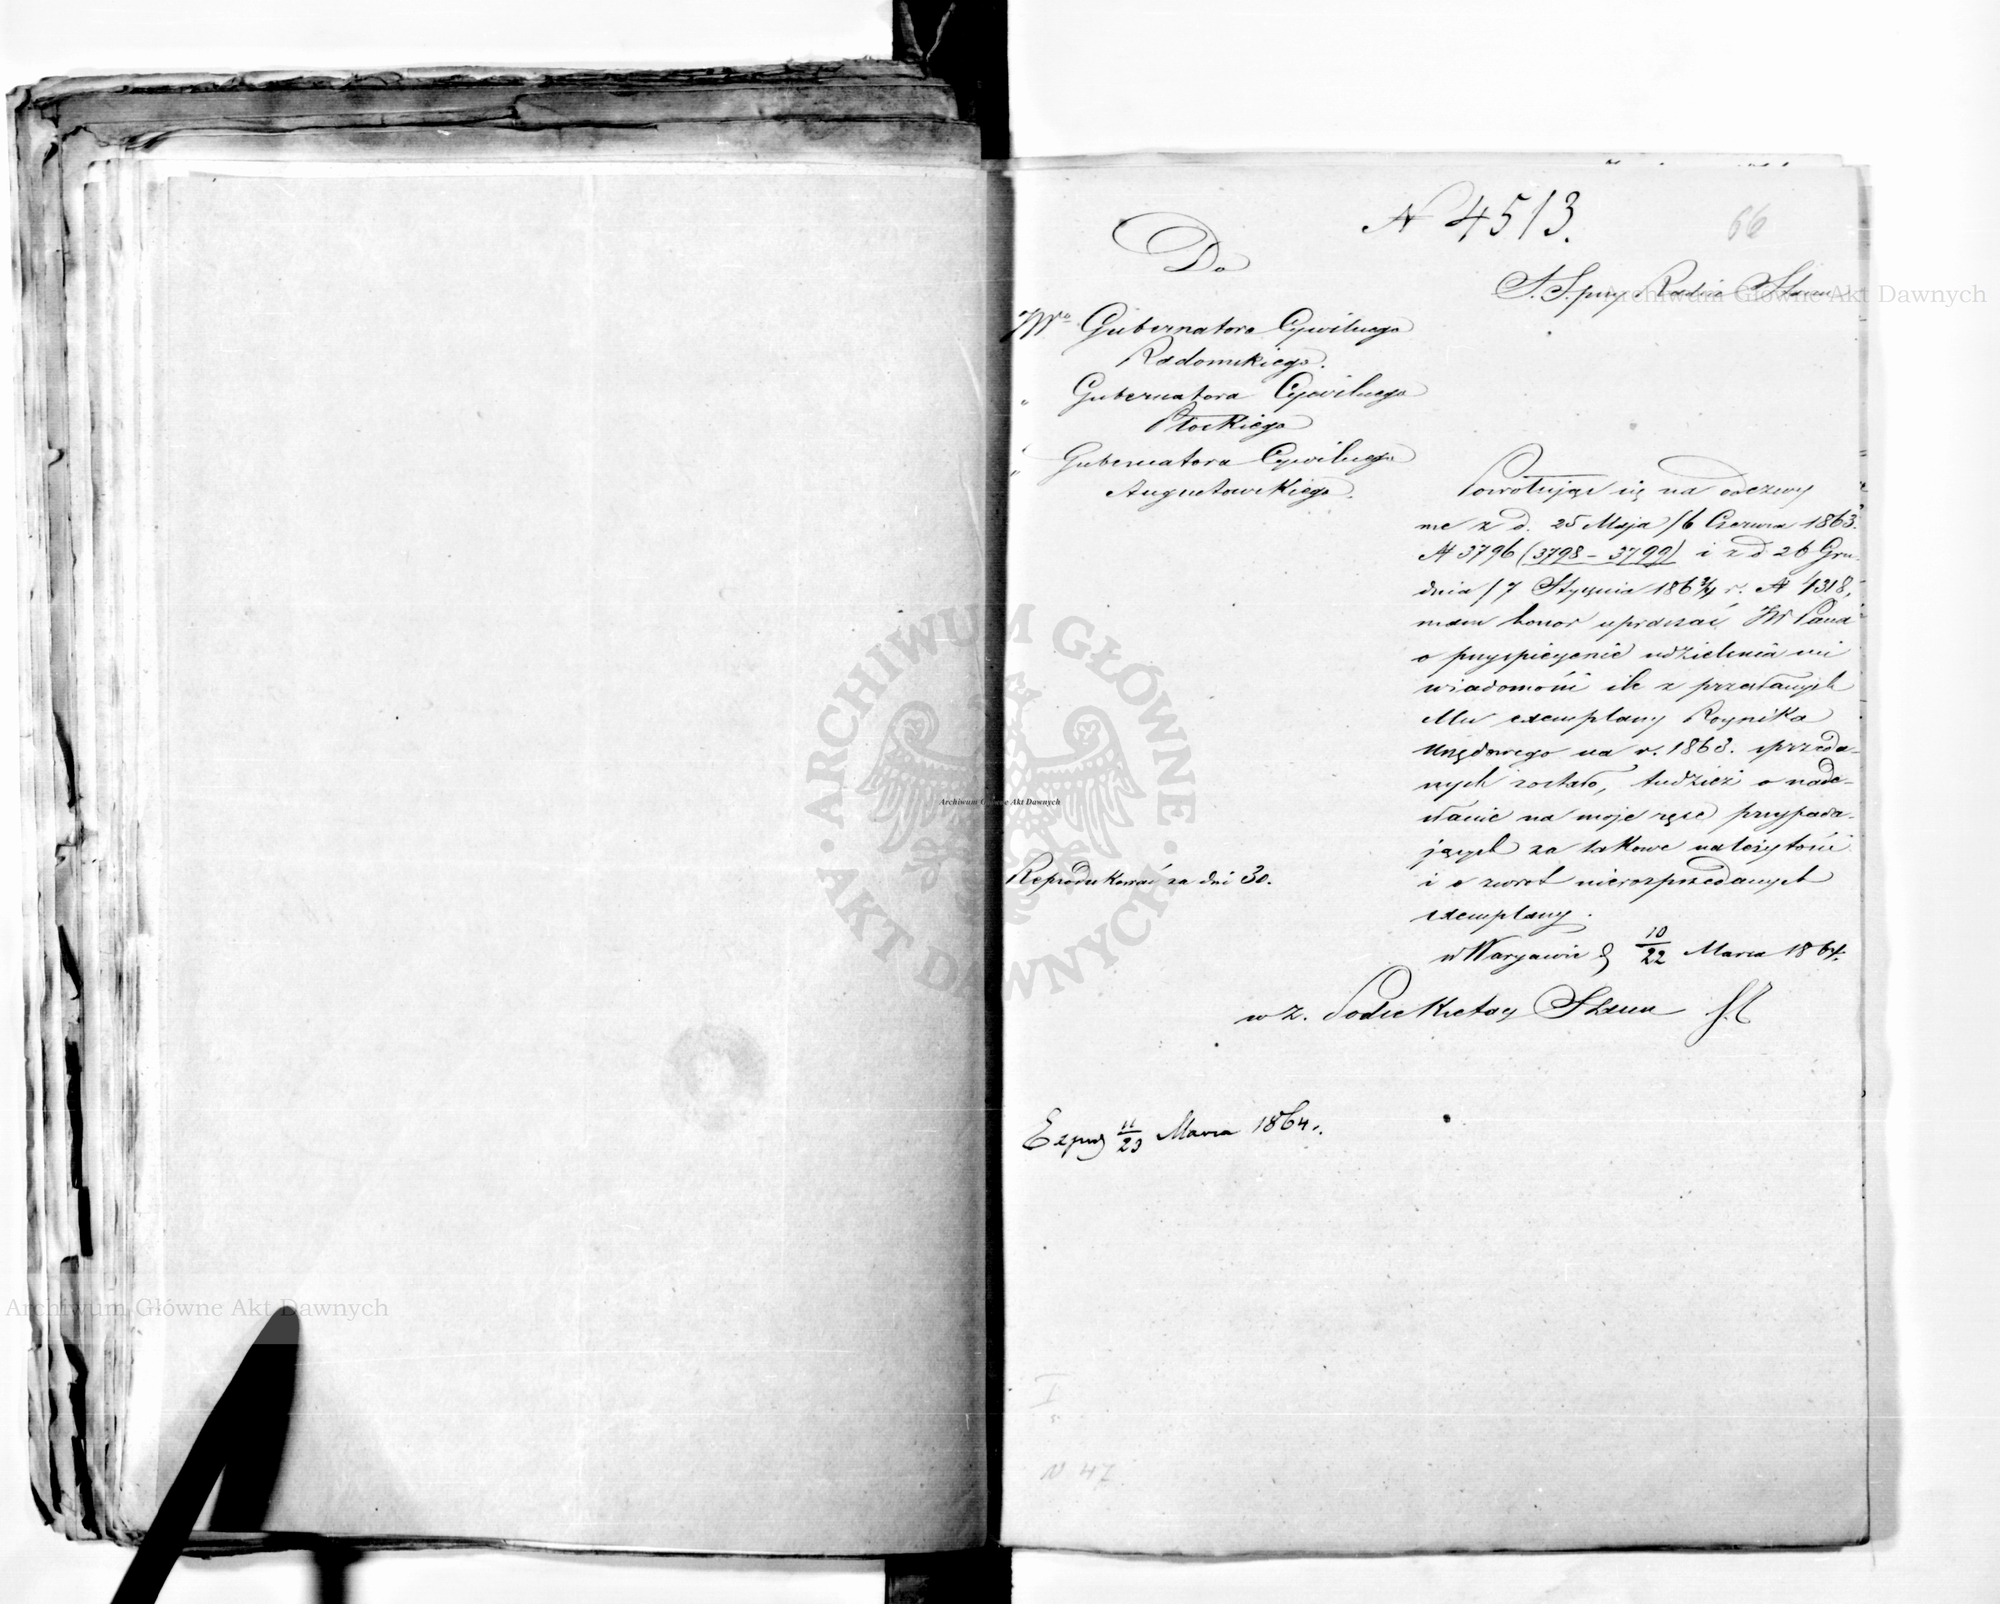 N 4513.
66
Do
S. S. przy Radzie Stanu
JW<sup>o</sup> Gubernatora Cywilnego
Radomskiego.
" Gubernatora Cywilnego
Płockiego
" Gubernatora Cywilnego
Augustowskiego.
Powołując się na odezwy
me z d. 25 Maja / 6 Czerwca 1863.
N 3796 (3798 – 3799) i z d 26 Gru-
dnia / 7 Stycznia 186 3/4 r. N 4318,
mam honor upraszać JW Pana
o przyspieszenie udzielenia mi
wiadomości ile z przesłanych
Mu exemplarzy Rocznika
Urzędowego na r. 1863. sprzeda-
nych zostało, tudzież o nade-
słanie na moje ręce przypada-
jących za takowe należytości
i o zwrot nierozprzedanych
exemplarzy.
Reprodukować za dni 30.
w Warszawie d 10/22 Marca 1864.
w z. Podsekretarz Stanu
Exped 11/23 Marca 1864 r.
I
N 47
Archiwum Główne Akt Dawnych
Archiwum Główne Akt Dawnych
Archiwum Główne Akt Dawnych
ARCHIWUM GŁÓWNE
AKT DAWNYCH